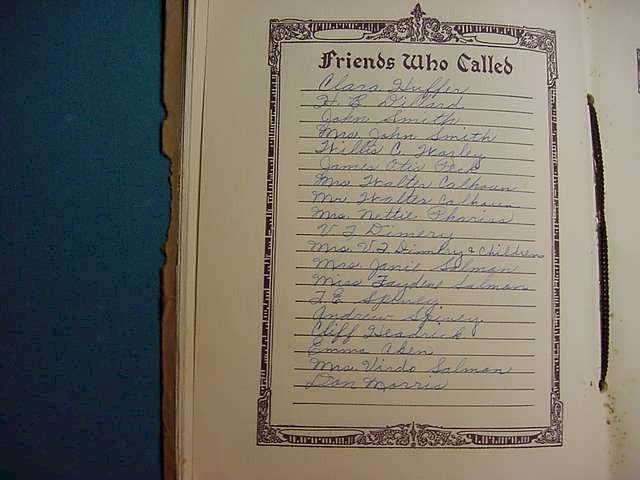 Friends Who Called
Clara Huffer
H. E. Dillard
John Smith
Mrs. John Smith
Willis C. Worley
James Otis Peck
Mrs Walter Calhoun
Mr. Walter Calhoun
Mrs. Nettie Phariss
V T Dimery
Mrs. V. T. Dimery & Children
Mrs. Janie Salmon
Miss Faydene Salmon
T. E. Spivey
Andrew Spivey
Cliff Headrick
Emma Aken
Mrs Virdo Salmon
Don Morris